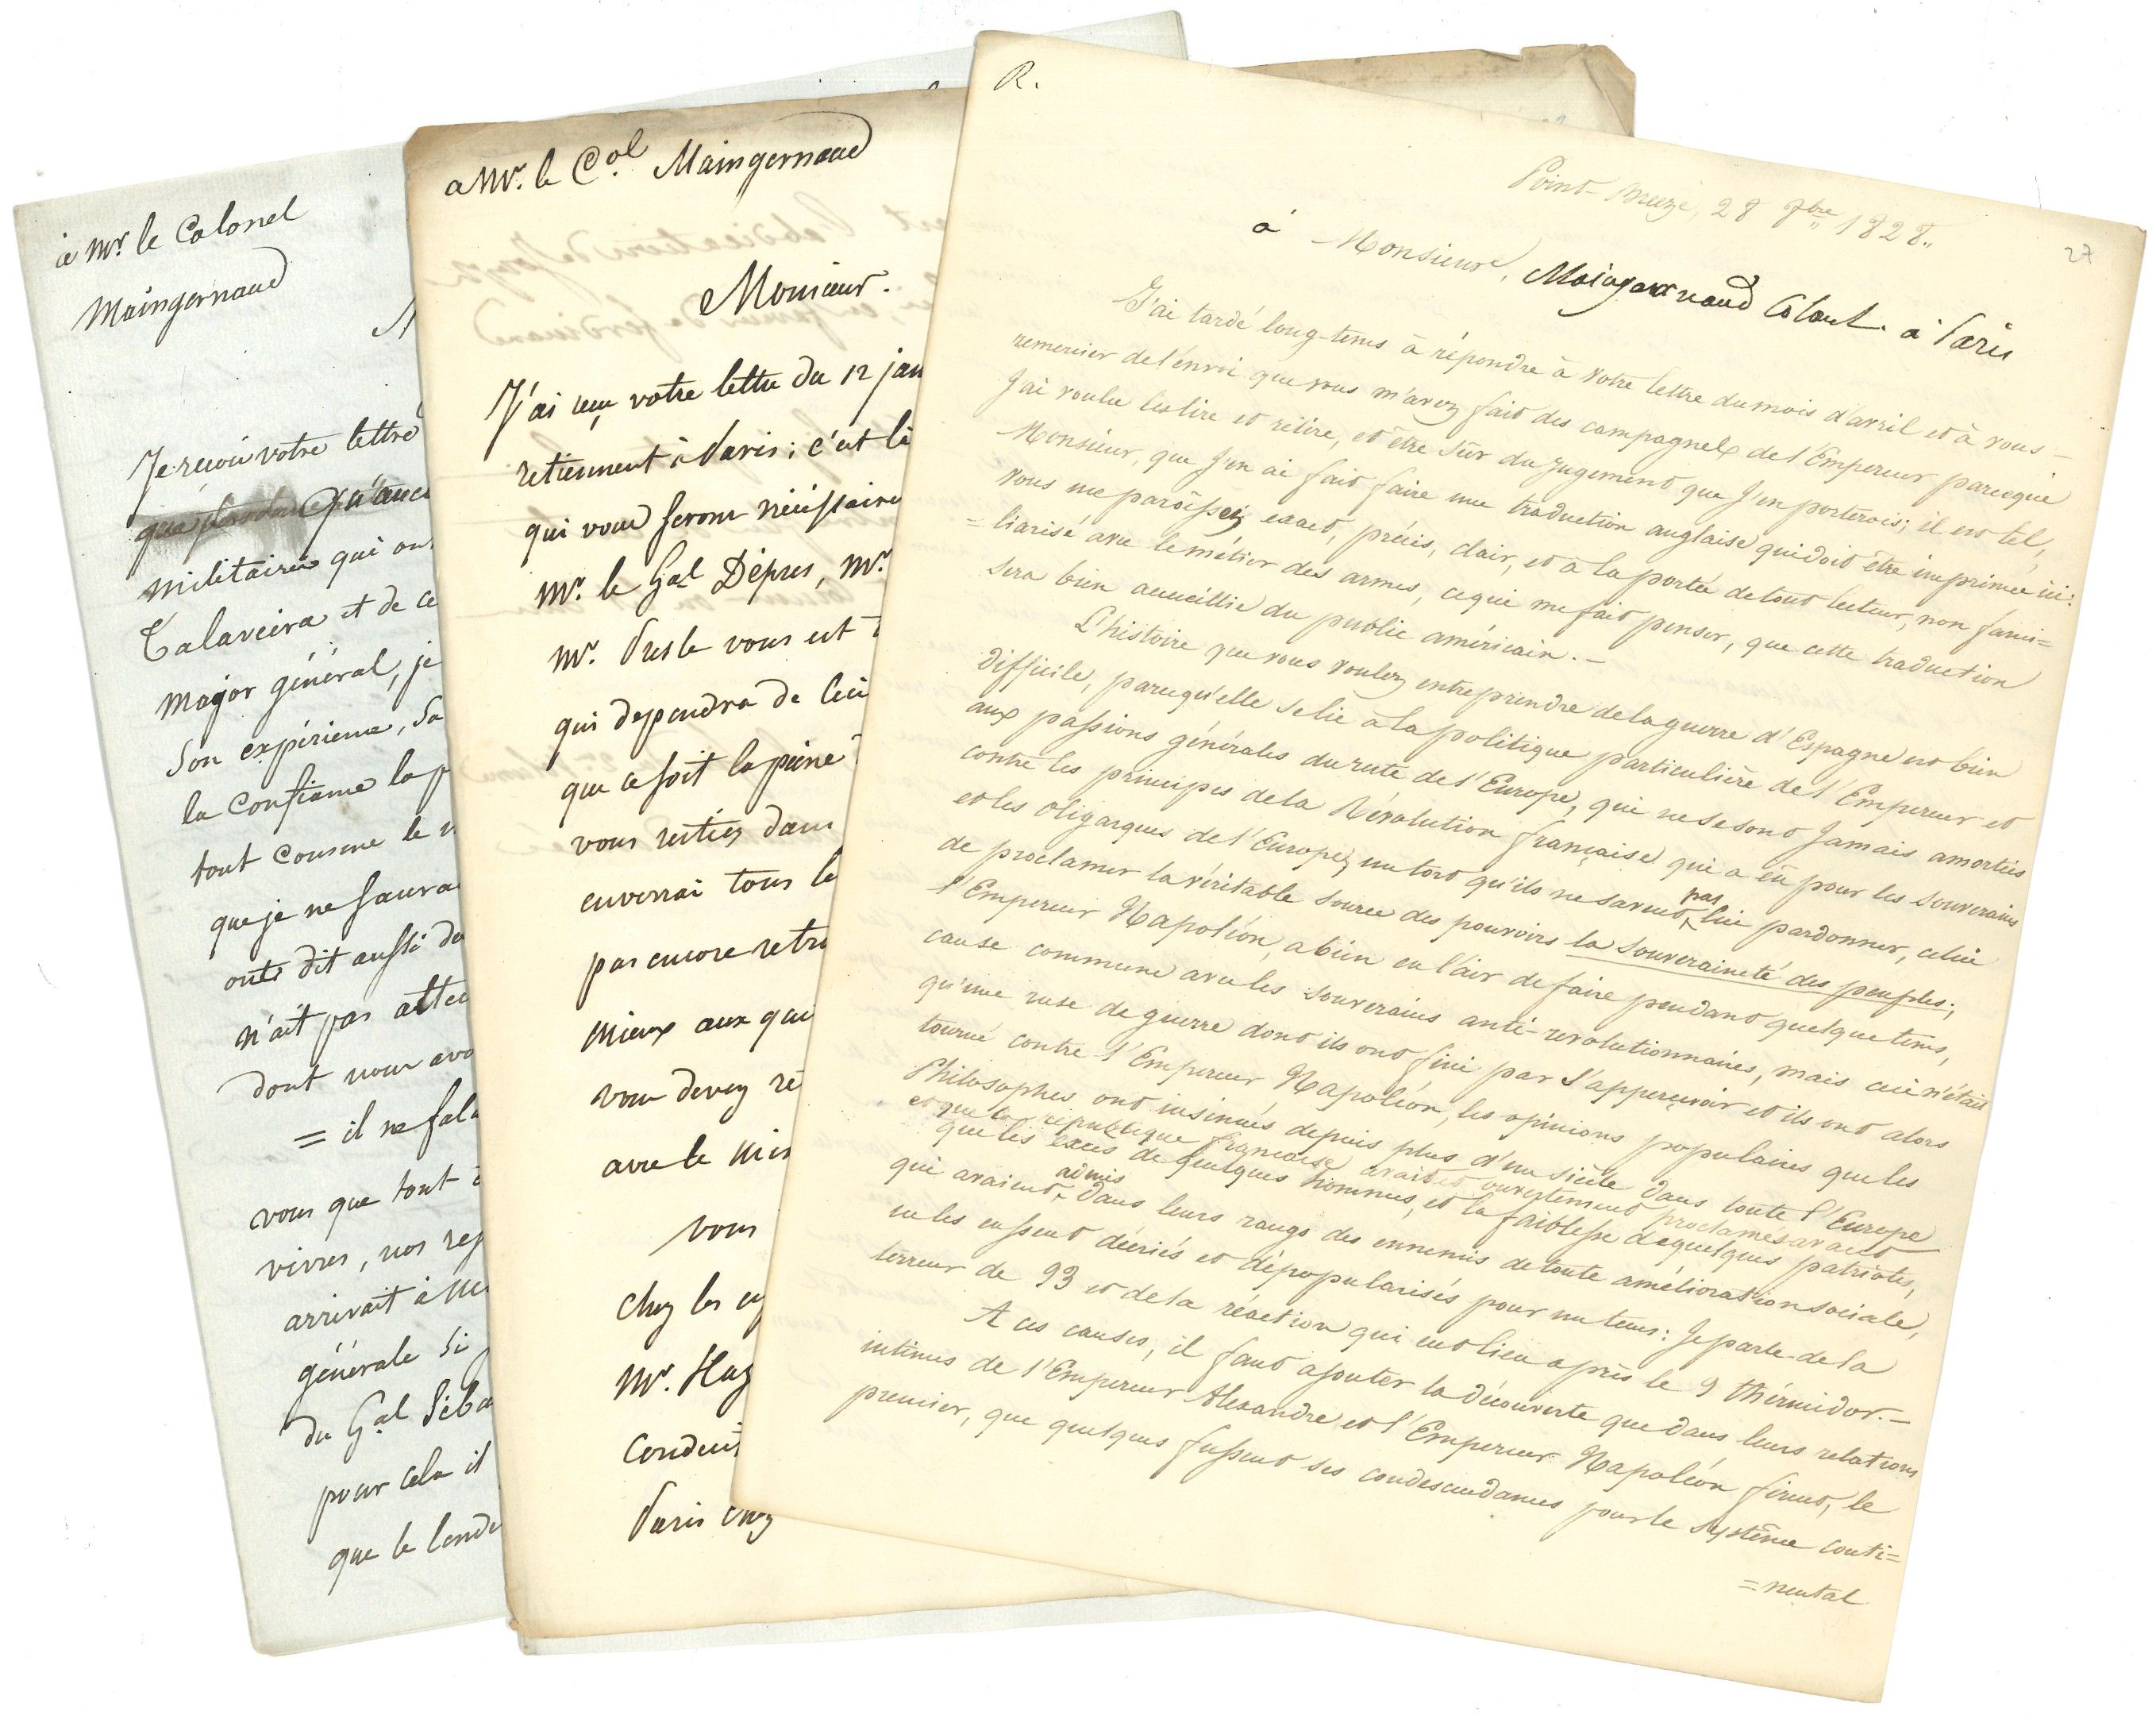 à Mr. le Colonel
Maingernaud
Je reçois votre lettre
qu'aucu
militaires qui ont
Talaveira et de ce
major général, je
Son expérience, Sa
la Confiance la p
tout comme le
que je ne saura
dit aussi de
n'ait pas atte
dont nous avo
= il ne fala
vous que tout
vivres, nos rep
arrivait à
générale si
du Gal Séba
pour cela il
que le lende
a Mr. le Col. Maingernaud
Monsieur.
J'ai reçu votre lettre du 12 jan
retiennent à Paris; c'est là
qui vous seront nécessaire
Mr. le Gal Dèpres, Mr.
Mr. Presle vous est
qui dependra de lui
que ce soit la peine
vous restiez dans
enverrai tous le
pas encore retro
mieux aux qui
vous devez re
avec le Min
vous
Chez les
Mr. Hag
Conduit
Paris chez
R.
Point-Breeze, 28 7bre 1828.
27
à Monsieur, Maingernaud Colonel à Paris
J'ai tardé long-tems à répondre à votre lettre du mois d'avril et à vous
remercier de l'envoi que vous m'avez fait des campagnes de l'Empereur parceque
J'ai voulu les lire et relire, et être sûr du jugement que J'en porterois; il est tel,
Monsieur, que J'en ai fait faire une traduction anglaise qui doit être imprimée ici:
vous me paraissez exact, précis, clair, et à la portée de tout lecteur, non fami=
=liarisé avec le métier des armes, ce qui me fait penser, que cette traduction
sera bien accueillie du public américain.-
L'histoire que vous voulez entreprendre de la guerre d'Espagne est bien
difficile, parcequ'elle se lie à la politique particulière de l'Empereur et
aux passions générales du reste de l'Europe, qui ne se sont Jamais amorties
contre les principes de la Révolution française qui a eu pour les Souverains
et les oligarques de l'Europe, un tort qu'ils ne savent pas lui pardonner, celui
de proclamer la véritable source des pouvoirs la Souveraineté des peuples;
l'Empereur Napoléon, a bien eu l'air de faire pendant quelque tems,
cause commune avec les souverains anti-revolutionnaires, mais ceci n'était
qu'une ruse de guerre dont ils ont fini par s'appercevoir et ils ont alors
tourné contre l'Empereur Napoléon, les opinions populaires que les
Philosophes ont insinués depuis plus d'un siècle dans toute l'Europe
et que la république française avait ouvertement proclamés avant
que les excès de quelques hommes, et la faiblesse de quelques patriotes,
qui avaient admis dans leurs rangs des ennemis de toute amélioration sociale,
ne les eussent décriés et dépopularisés pour un tems: Je parle de la
terreur de 93 et de la réaction qui eut lieu après le 9 thermidor.-
A ces causes, il faut ajouter la découverte que dans leurs relations
intimes de l'Empereur Alexandre et l'Empereur Napoléon firent, le
premier, que quelques fussent ses condescendances pour le système conti=
=nental